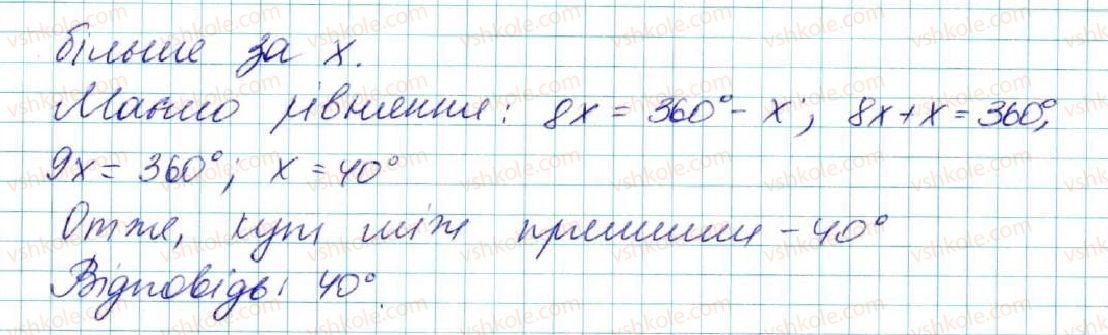 більше за x.
Маємо рівняння: 8x = 360° - x; 8x + x = 360°;
9x = 360°; x = 40°
Отже, кут між прямими - 40°
Відповідь: 40°.